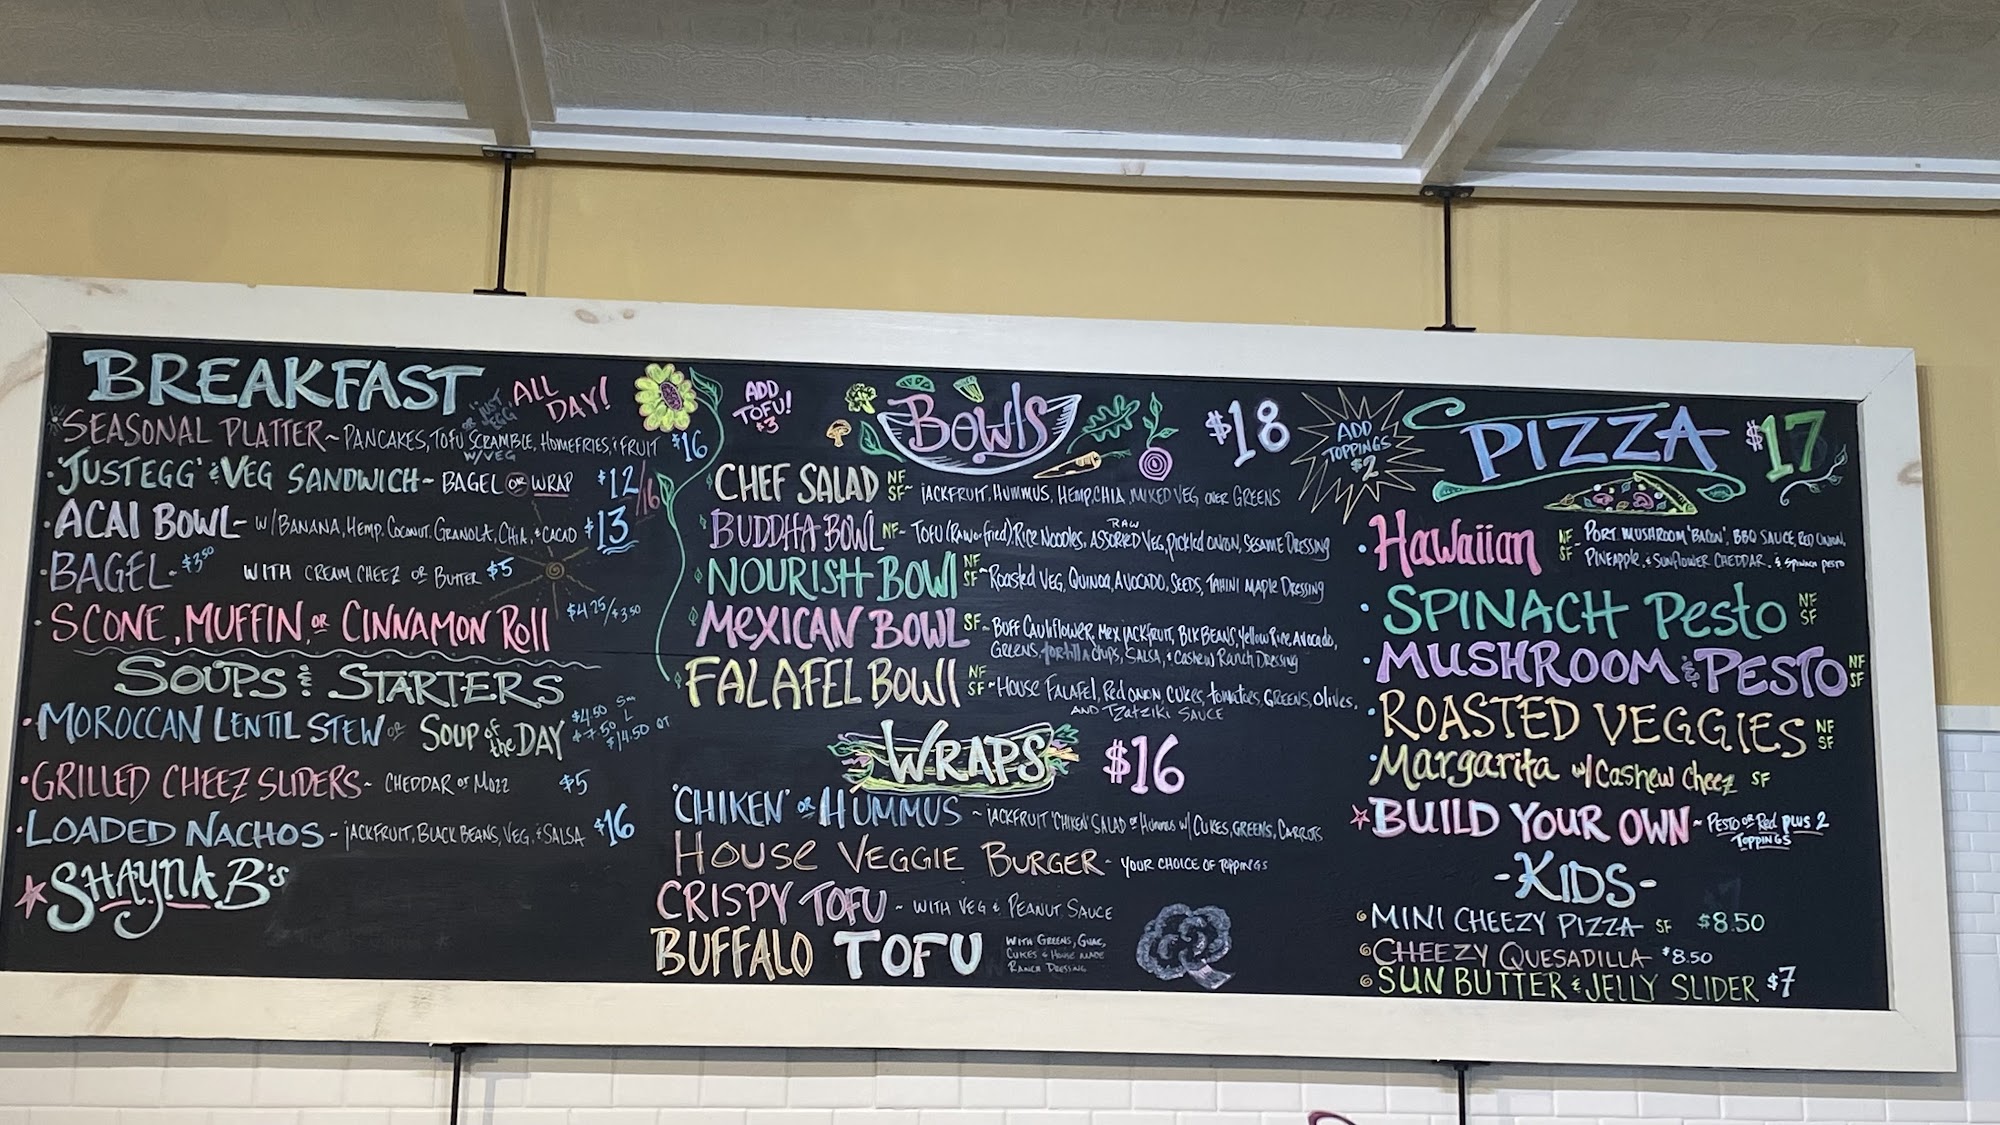 BREAKFAST ALL DAY!
SEASONAL PLATTER ~ PANCAKES, TOFU SCRAMBLE, HOMEFRIES, & FRUIT $16
OR "JUST EGG"
W/VEG
'JUSTEGG' & VEG SANDWICH ~ BAGEL OR WRAP $12/16
ACAI BOWL ~ W/BANANA, HEMP, COCONUT, GRANOLA, CHIA, & CACAO $13
BAGEL - $3.50 WITH CREAM CHEEZ OR BUTTER $5
SCONE, MUFFIN, OR CINNAMON ROLL $4.25/$3.50
SOUPS & STARTERS
MOROCCAN LENTIL STEW OR SOUP of the DAY $4.50 Sm
$7.50 L
$14.50 QT
GRILLED CHEEZ SLIDERS ~ CHEDDAR or MOZZ $5
LOADED NACHOS ~ JACKFRUIT, BLACK BEANS, VEG, & SALSA $16
SHAYNA B's
ADD TOFU! $3
BOWLS $18
CHEF SALAD NF SF ~ JACKFRUIT, HUMMUS, HEMP, CHIA, MIXED VEG OVER GREENS
BUDDHA BOWL NF ~ TOFU (RAW or fried), RICE NOODLES, ASSORTED RAW VEG, PICKLED ONION, SESAME DRESSING
NOURISH BOWL NF SF ~ ROASTED VEG, QUINOA, AVOCADO, SEEDS, TAHINI MAPLE DRESSING
MEXICAN BOWL SF ~ BUFF CAULIFLOWER, MEX JACKFRUIT, BLK BEANS, YELLOW RICE, AVOCADO,
GREENS, TORTILLA CHIPS, SALSA, & CASHEW RANCH DRESSING
FALAFEL BOWL NF SF ~ HOUSE FALAFEL, RED ONION, CUKES, TOMATOES, GREENS, OLIVES,
AND TZATZIKI SAUCE
WRAPS $16
'CHIKEN' OR HUMMUS ~ JACKFRUIT 'CHIKEN' SALAD OR HUMMUS W/ CUKES, GREENS, CARROTS
HOUSE VEGGIE BURGER - YOUR CHOICE OF TOPPINGS
CRISPY TOFU ~ WITH VEG & PEANUT SAUCE
BUFFALO TOFU WITH GREENS, GUAC,
CUKES & HOUSE MADE
RANCH DRESSING
ADD TOPPINGS $2
PIZZA $17
Hawaiian NF SF PORT. MUSHROOM 'BACON', BBQ SAUCE, RED ONION,
PINEAPPLE, & SUNFLOWER CHEDDAR. & SPINACH PESTO
SPINACH Pesto NF SF
MUSHROOM & PESTO NF SF
ROASTED VEGGIES NF SF
Margarita w/ Cashew cheez SF
BUILD YOUR OWN ~ PESTO OR Red plus 2
TOPPINGS
-KIDS-
MINI CHEEZY PIZZA SF $8.50
CHEEZY QUESADILLA $8.50
SUN BUTTER & JELLY SLIDER $7